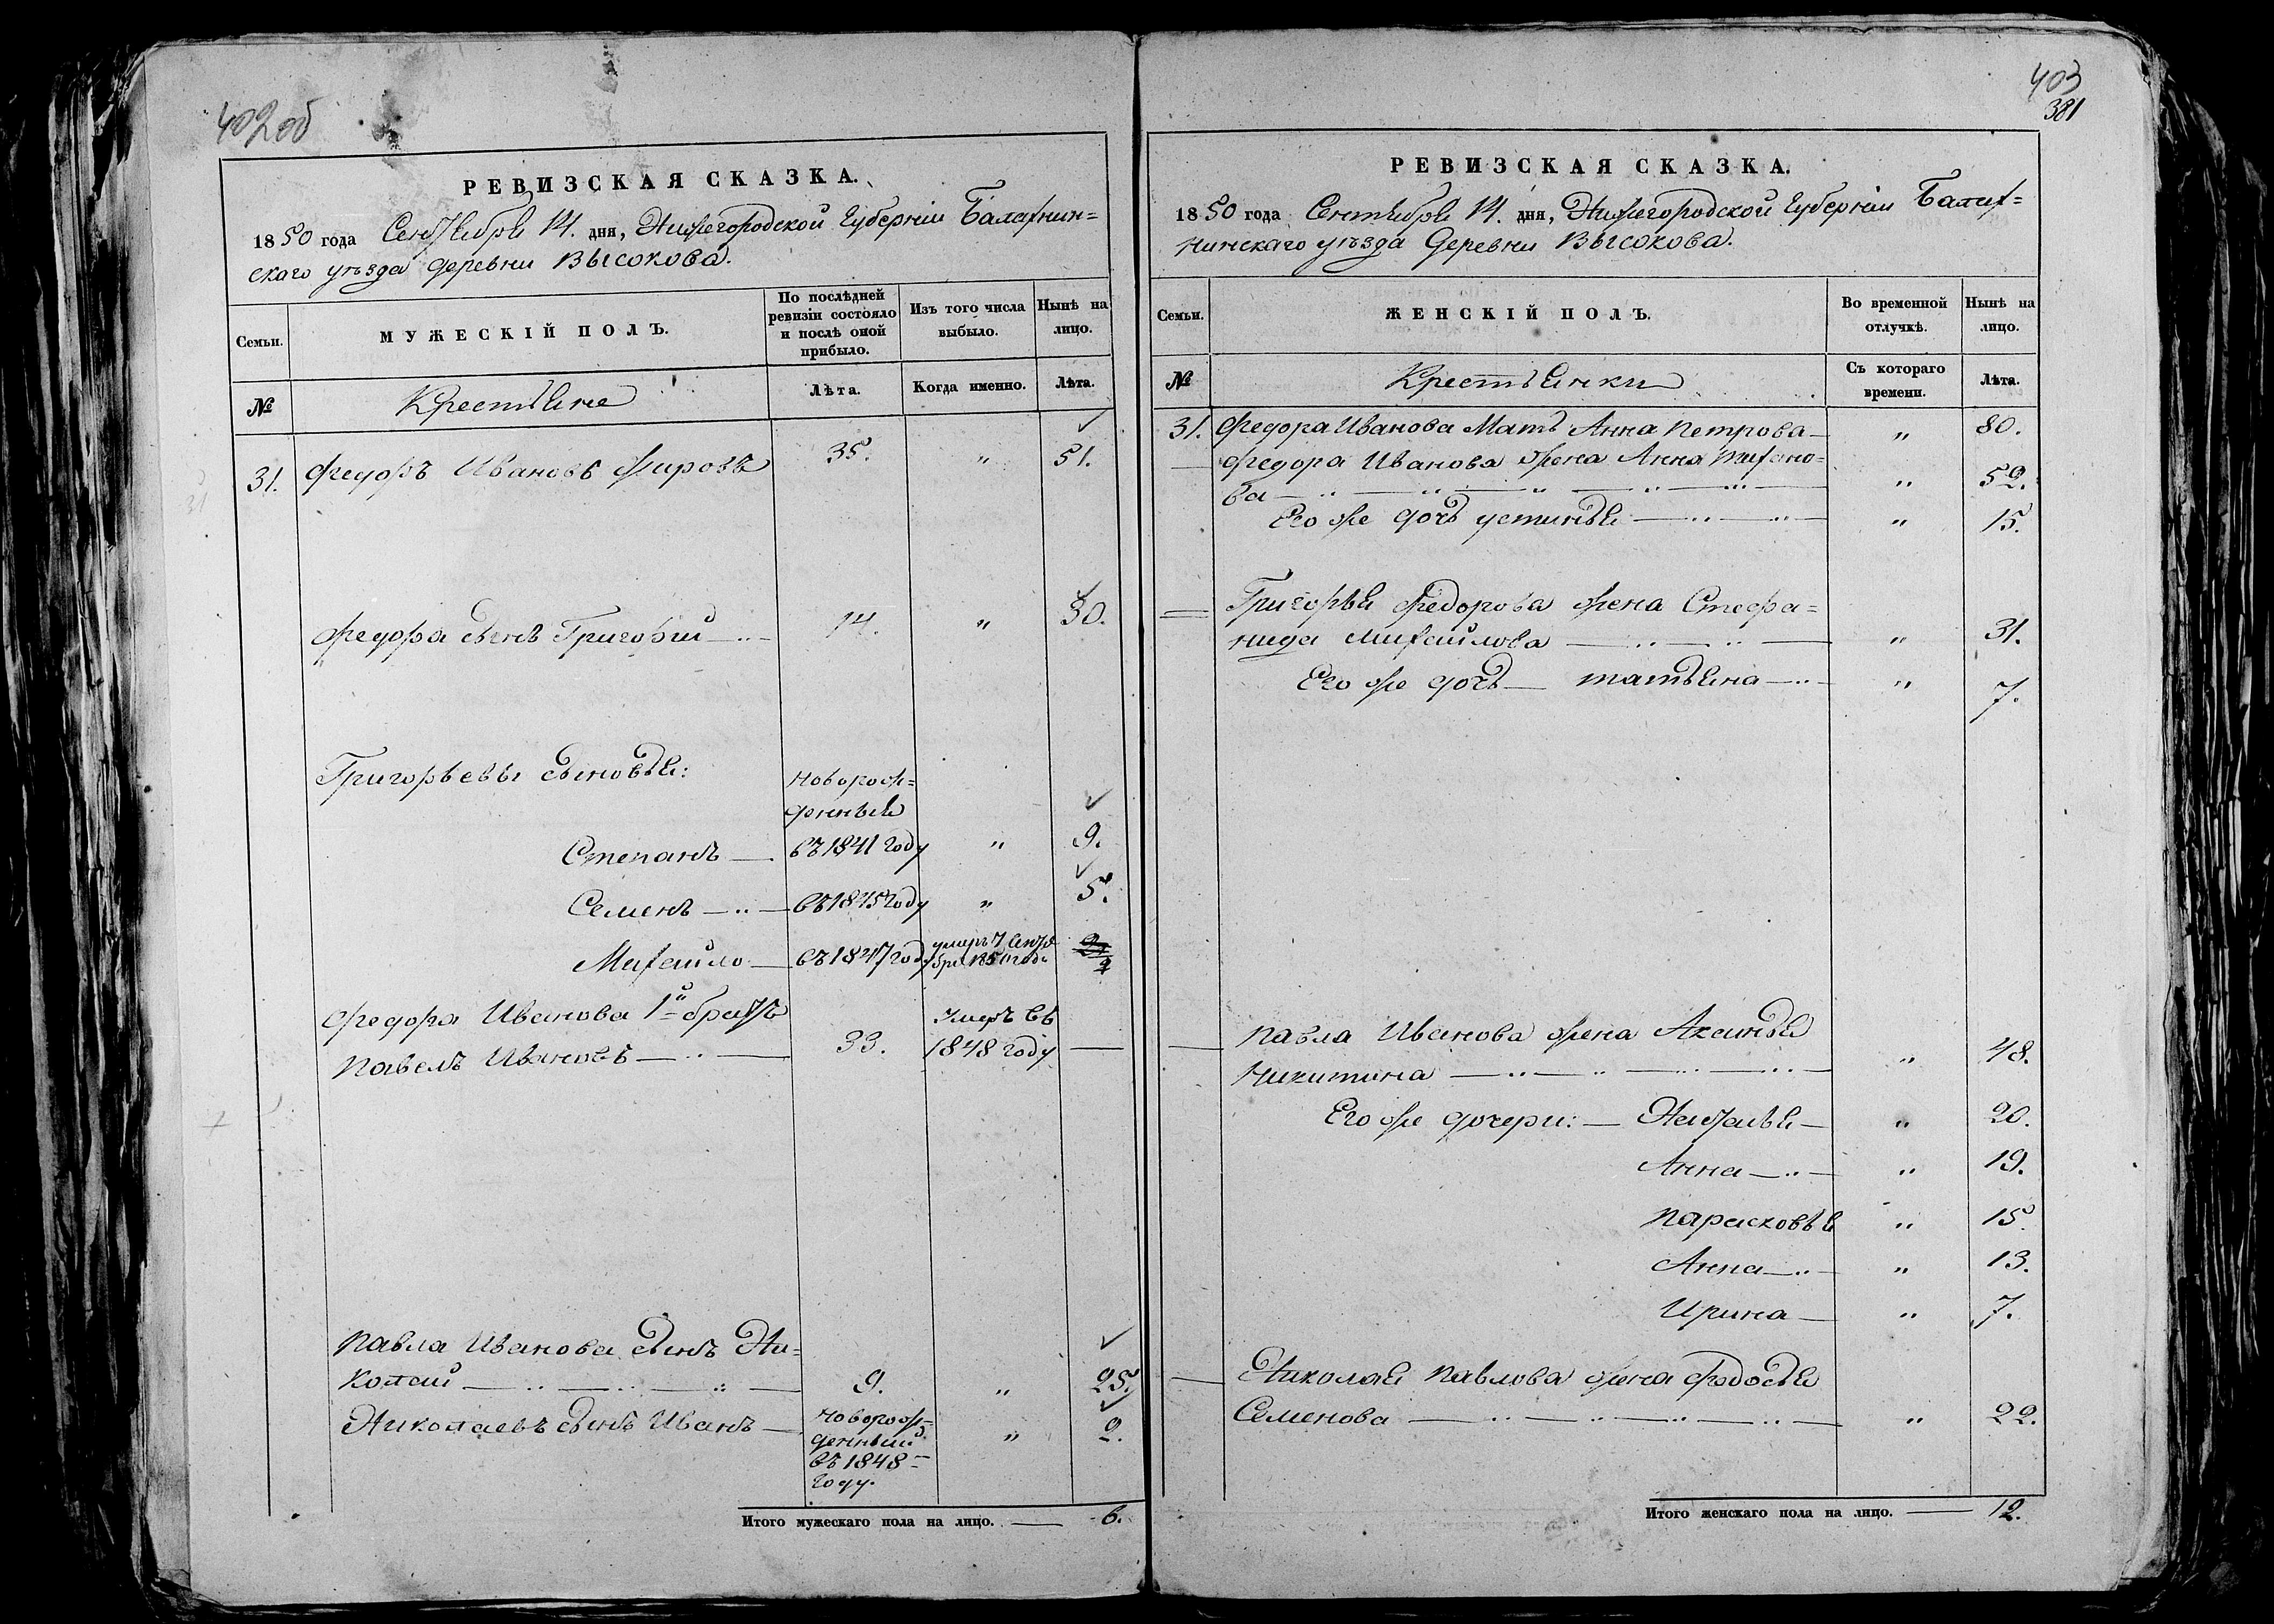 402 об
РЕВИЗСКАЯ СКАЗКА.
1850 года Сентября 14. дня, Нижегородской Губерніи Балахнин=
скаго уѣзда деревни Высокова.
Семьи.
МУЖЕСКІЙ ПОЛЪ.
По послѣдней
ревизіи состояло
и послѣ оной
прибыло.
Изъ того числа
выбыло.
Нынѣ на
лицо.
№
Крестьяне
Лѣта.
Когда именно.
Лѣта.
31. Федоръ Ивановъ 35. „ 51.
Федора сынъ Григорій 14. „ 30.
Григорьевы сыновья:
Новорож=
денные
Степанъ въ 1841 году „ 9.
Семенъ въ 1845 году „ 5.
Михайло въ 1847 году умеръ 7 Сентя
бря 1850 года
Федора Иванова 1й братъ
Павелъ Ивановъ 33. умеръ въ
1848 году —
Павла Иванова сынъ Ни=
колай 9. „ 25.
Николаевъ сынъ Иванъ Новорож=
денный
въ 1848
году. „ 2.
Итого мужескаго пола на лицо. 6.
403
381
РЕВИЗСКАЯ СКАЗКА.
1850 года Сентября 14. дня, Нижегородской Губерніи Балах=
нинскаго уѣзда Деревни Высокова.
Семьи.
ЖЕНСКІЙ ПОЛЪ.
Во временной
отлучкѣ.
Нынѣ на
лицо.
№
Крестьянки
Съ котораго
времени.
Лѣта.
31. Федора Иванова Мать Анна Петрова „ 80.
Федора Иванова жена Анна Тихано=
ва „ 52.
Его же дочь Устинья „ 15.
Григорья Федорова жена Стефа=
нида Михайлова „ 31.
Его же дочь Татьяна „ 7.
Павла Иванова жена Аксинья
Никитина „ 48.
Его же дочери: Наталья „ 20.
Анна „ 19.
Парасковья „ 15.
Анна „ 13.
Ирина „ 7.
Николая Павлова жена Федосья
Семенова „ 22.
Итого женскаго пола на лицо. 12.